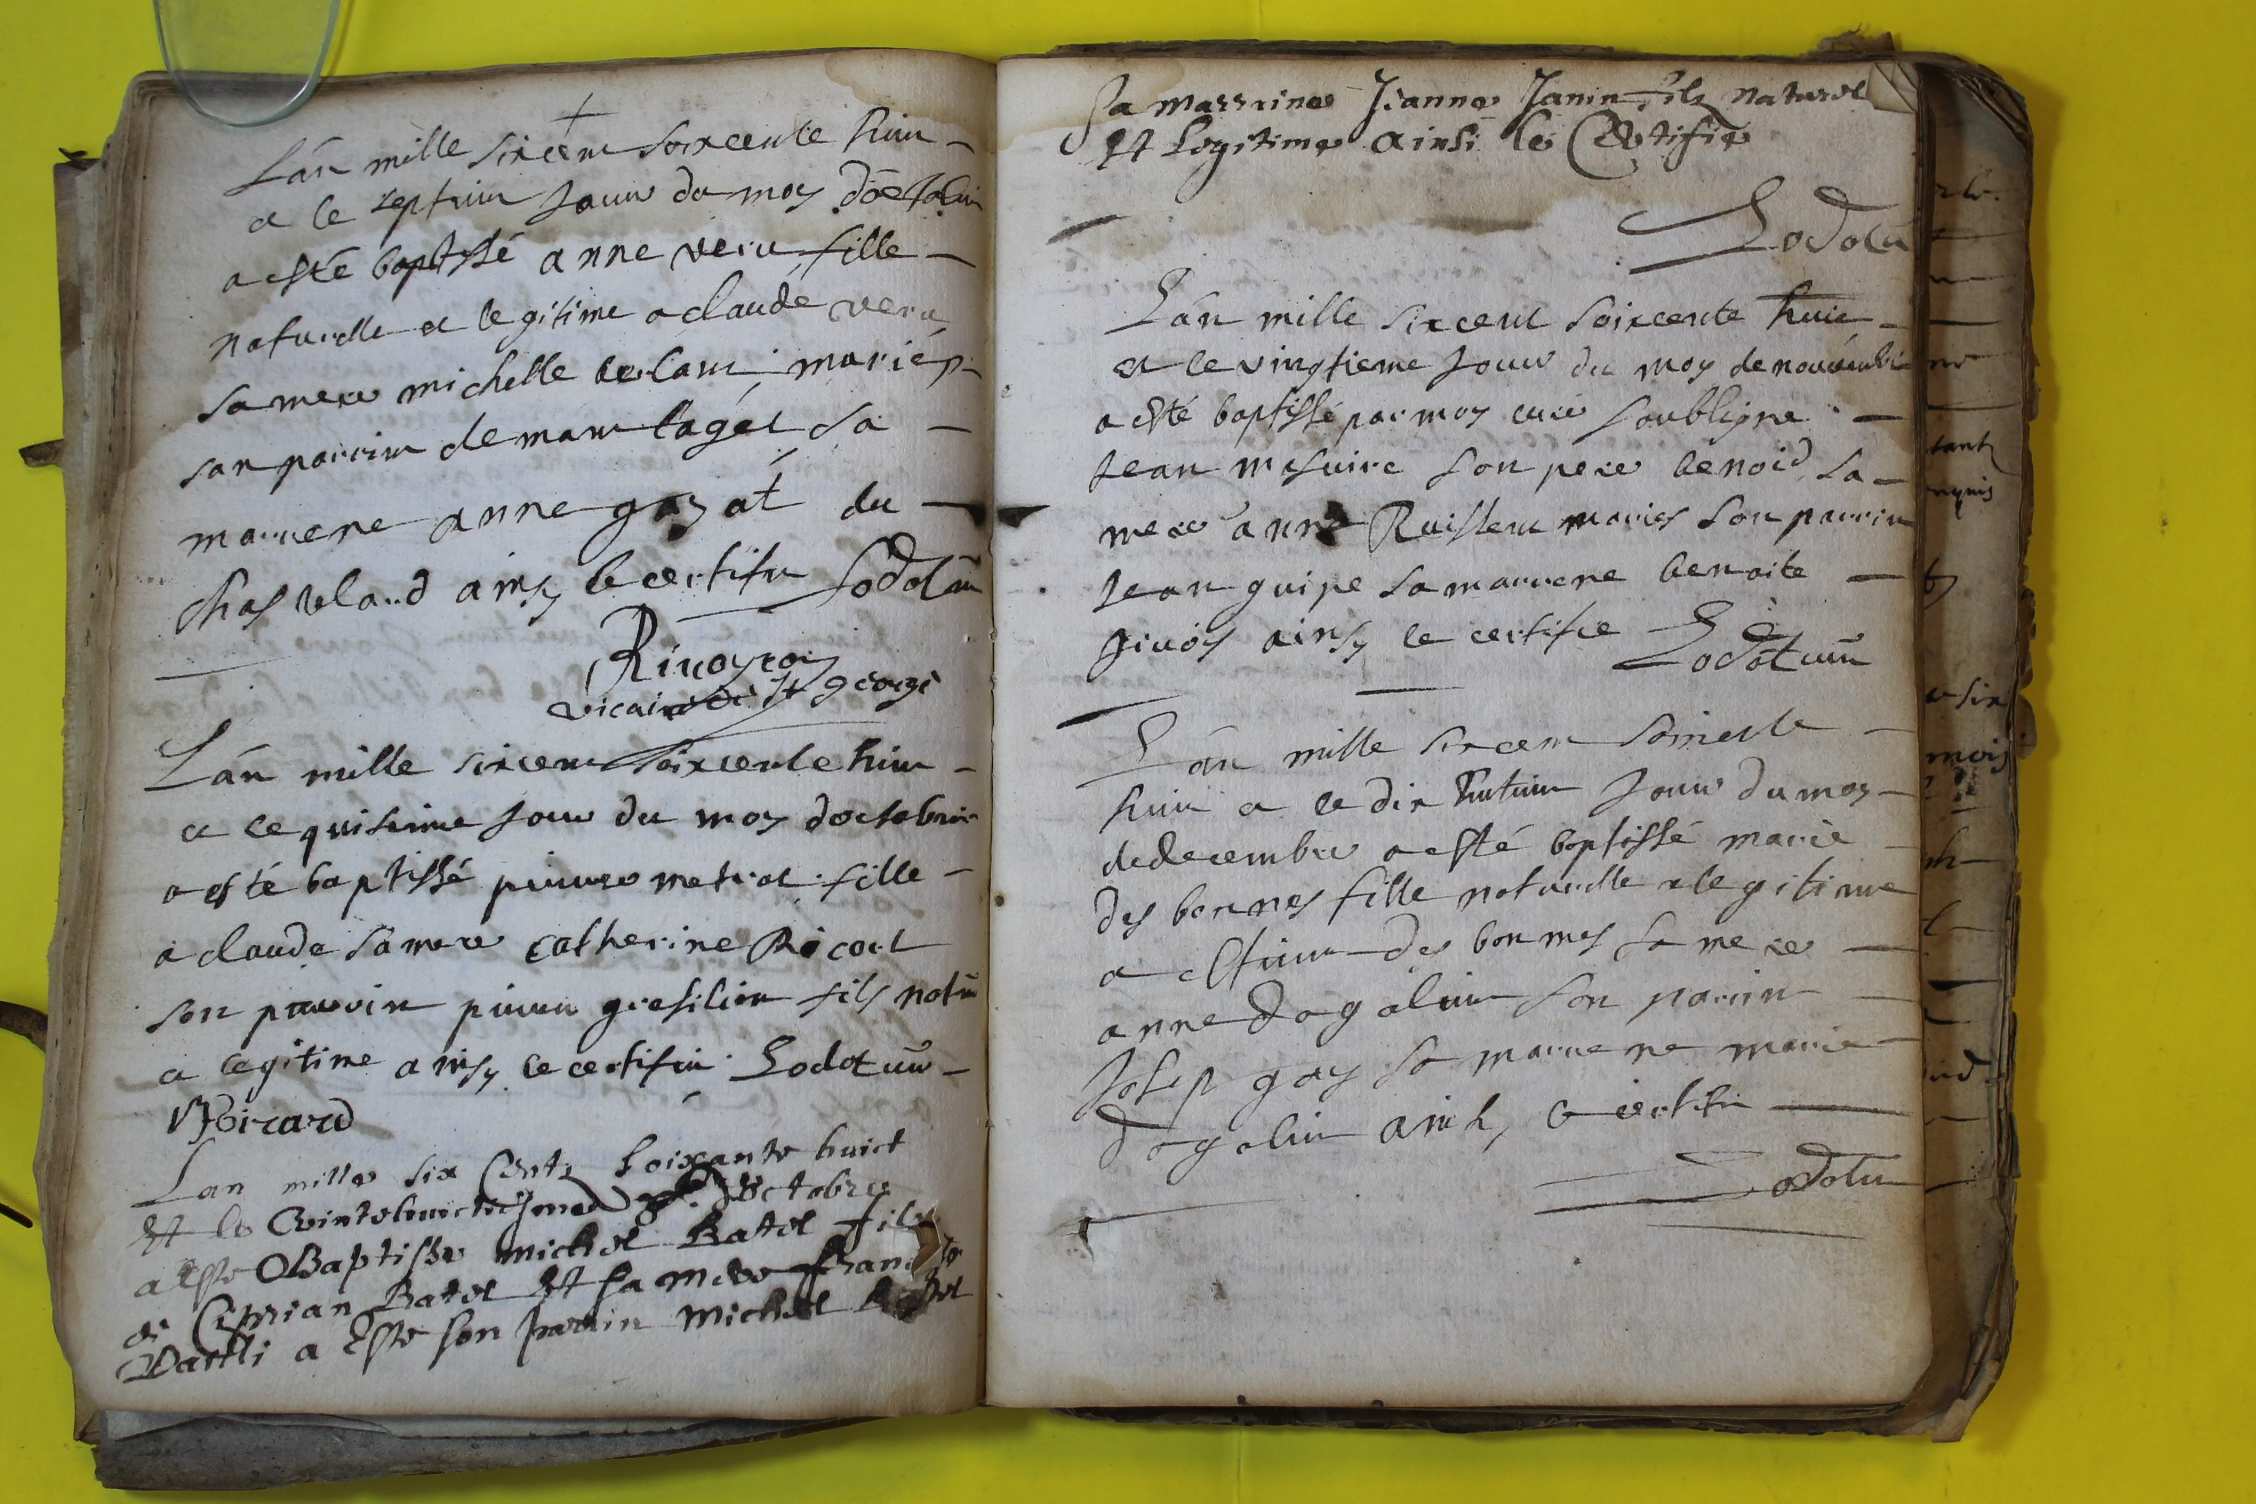 Lán mille sixcens soixcente huit
et le septiem Jour du moy d'octobre
a esté baptissé anne veru fille
naturelle et legitime a claude veru
sa mere michelle mariés
son parrin de mam tagét sa
marrene anne gozat du
chastelard ainsy le certifie Lodotun
Rivoyron
vicaire de st george
Lán mille sixcens soixcente huit
et le quisieme Jour du moy doctobre
a esté baptissé pierre metrat fille
a claude sa mere catherine Ricort
son parrin pierre gresilion fils natu
et legitime ainsy le certifie Lodotun
Noirard
Lan mille six Centz soixante huict
Et le vintehuictiesme d'octobre
a Este Baptisse michel Batel fils
de Ciprian Batel Et sa mere
a Este son parrin michel Batel
sa marrine Jeanne Janin fils naturel
Et Legitime ainsi le Certifie
Lodotu
Lán mille sixcent soixcente huit
et le vingtieme Jour du moy de nouembre
a esté baptissé par moy curé soubligne
Jean mesuire son pere benoid sa
mere anne Ruisleu mariés son parrin
Jean guipe sa marrene benoite
ainsy le certifie
Lodotun
Lán mille sixcens soixcente
huit et le dix hutiem Jour du moy
de decembre a esté baptissé marie
des bonnes fille naturelle et legitime
a estiene des bonnes sa mere
anne dogalier son parrin
Josep gay sa marrene marie
dogalier ainsi le certifie
Lodotu